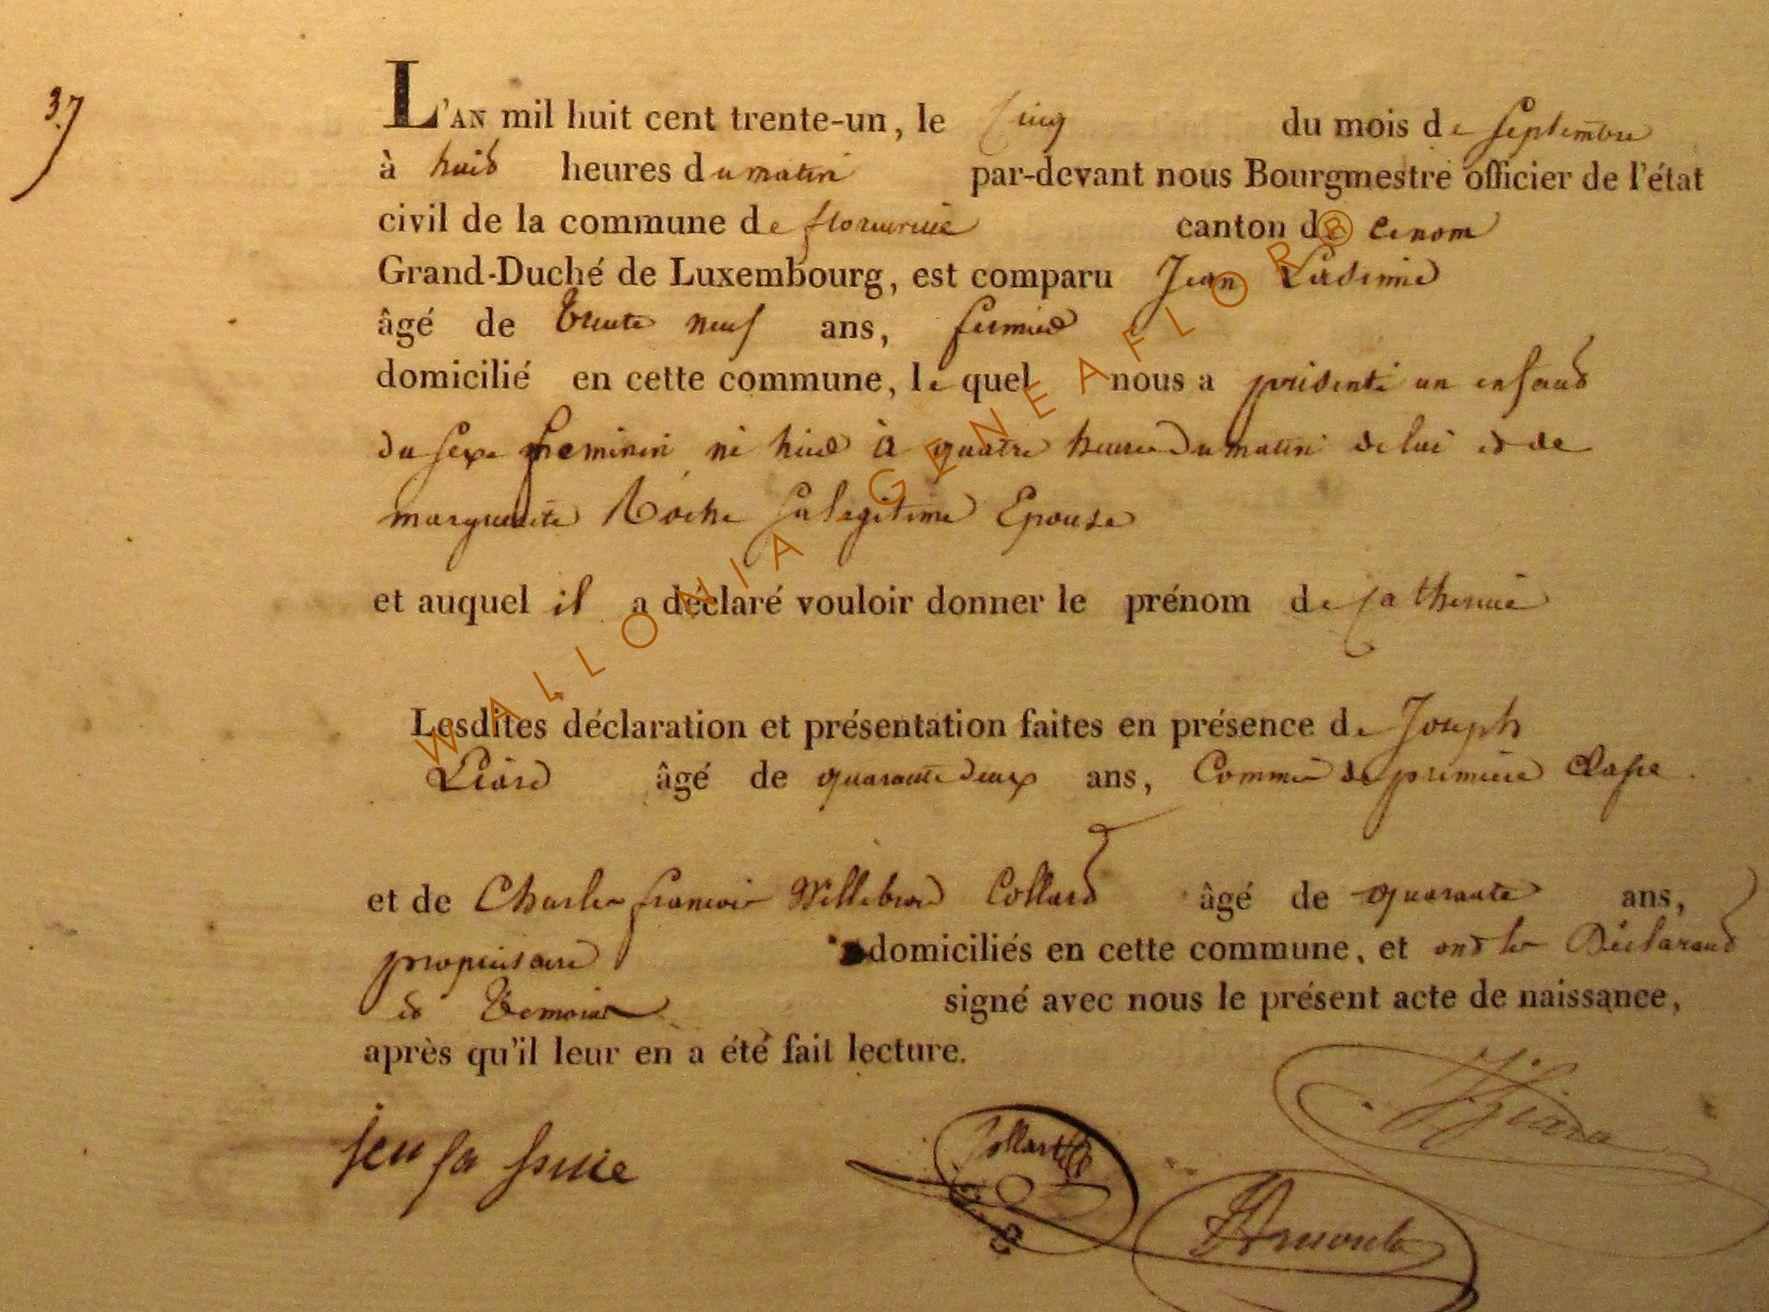 37
L'AN mil huit cent trente-un, le Cinq du mois de Septembre
à huit heures du matin par-devant nous Bourgmestre officier de l'état
civil de la commune de canton de ce nom
Grand-Duché de Luxembourg, est comparu Jean
âgé de trente neuf ans, fermier
domicilié en cette commune, le quel nous a présenté un enfant
du sexe feminin né hier à quatre heures du matin de lui et de
marguerite Roche sa legitime Epouse
et auquel il a déclaré vouloir donner le prénom de Catherine
Lesdites déclaration et présentation faites en présence de Joseph
âgé de quarante deux ans, Commis de première classe
et de Charles françois Willebrord Collard âgé de quarante ans,
propriétaire domiciliés en cette commune, et ont les Déclarant
et temoins signé avec nous le présent acte de naissance,
après qu'il leur en a été fait lecture.
Collard
WALLONIA GENEAFLOR®